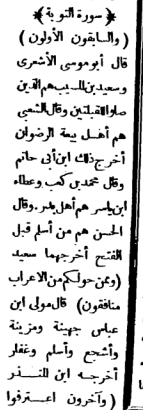 ﴿ سورة التوبة ﴾
( والسابقون الأولون )
قال أبو موسى الأشعرى
وسعيد بن المسيب هم الذين
صلوا القبلتين وقال الشعبى
هم أهل بيعة الرضوان
أخرج ذلك ابن أبى حاتم
وقال محمد بن كعب وعطاء
ابن يسار هم أهل بدر وقال
الحسن هم من أسلم قبل
الفتح أخرجهما سعيد
( وممن حولكم من الاعراب
منافقون ) قال مولى ابن
عباس جهينة ومزينة
وأشجع وأسلم وغفار
أخرجه ابن المنذر
( وآخرون اعترفوا